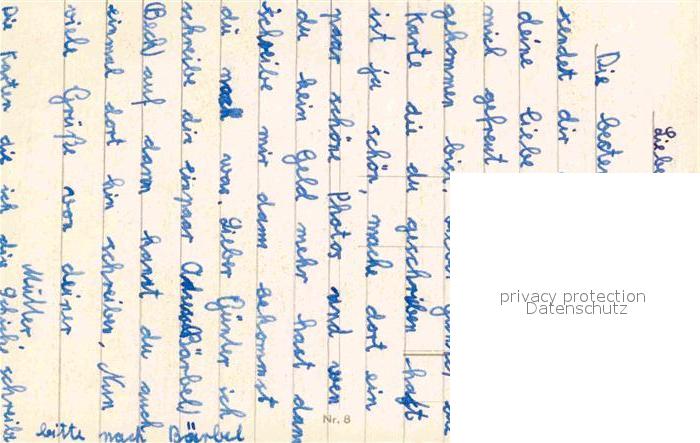 Liebe
Die besten
sendet dir
deine liebe
mich gefreut
gekommen bis.
Karte die du geschrieben haft
ist ja schön, mache dort ein
paar schöne Photos und wen
du kein Geld mehr hast dan
schreibe mir dann bekommst
du noch was, Lieber Günter ich
schreibe dir einpaar Adres Bärbel)
(Bad) auf dann kanst du auch
einmal dort hin schreiben, Nun
viele Grüße von deiner
Müller
Die Karten die ich dir schreibe
bitte nach Bärbel
Nr. 8
privacy protection
Datenschutz